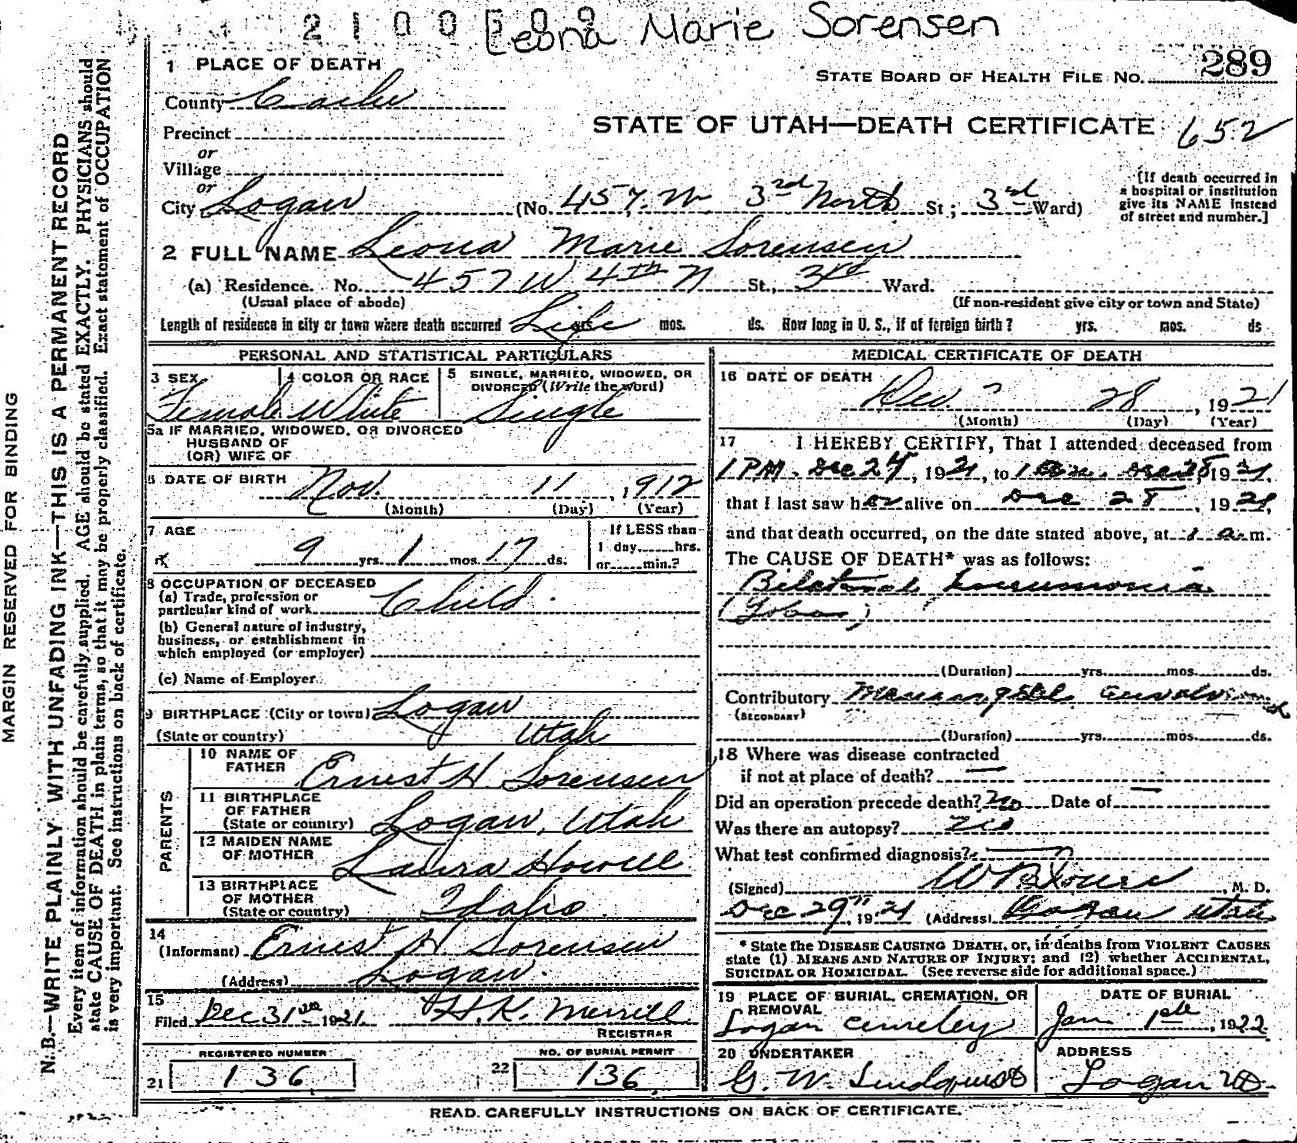 2 1 0 0 5 0 9 Leona Marie Sorensen
1 PLACE OF DEATH
STATE BOARD OF HEALTH FILE NO. 289
County Cache
STATE OF UTAH—DEATH CERTIFICATE 652
Precinct
or
Village
or
City Logan (No. 457. W. 3rd North St; 3rd Ward)
[If death occurred in
a hospital or institution
give its NAME instead
of street and number.]
2 FULL NAME Leona Marie Sorensen
(a) Residence. No. 457 W 4th N St., 3rd Ward.
(Usual place of abode) (If non-resident give city or town and State)
Length of residence in city or town where death occurred Life mos. ds. How long in U. S., if of foreign birth? yrs. mos. ds
PERSONAL AND STATISTICAL PARTICULARS
3 SEX 4 COLOR OR RACE 5 SINGLE, MARRIED, WIDOWED, OR
DIVORCED (Write the word)
Female White Single
5a IF MARRIED, WIDOWED, OR DIVORCED
HUSBAND OF
(OR) WIFE OF
6 DATE OF BIRTH Nov. 11, 1912
(Month) (Day) (Year)
7 AGE If LESS than
9 yrs. 1 mos. 17 ds. 1 day hrs.
or min.?
8 OCCUPATION OF DECEASED
(a) Trade, profession or
particular kind of work Child.
(b) General nature of industry,
business, or establishment in
which employed (or employer)
(c) Name of Employer
9 BIRTHPLACE (City or town) Logan
(State or country) Utah
PARENTS
10 NAME OF
FATHER Ernest H Sorensen
11 BIRTHPLACE
OF FATHER
(State or country) Logan, Utah
12 MAIDEN NAME
OF MOTHER Laura Howell
13 BIRTHPLACE
OF MOTHER
(State or country) Idaho.
14
(Informant) Ernest H Sorensen
(Address) Logan.
15
Filed Dec 31 1921. H. K. Merrill
REGISTRAR
REGISTERED NUMBER NO. OF BURIAL PERMIT
21 136 22 136
MEDICAL CERTIFICATE OF DEATH
16 DATE OF DEATH Dec. 28, 1921
(Month) (Day) (Year)
17 I HEREBY CERTIFY, That I attended deceased from
1 PM. Dec 27, 1921, to 1 Dec 28, 1921,
that I last saw her alive on Dec 28, 1921,
and that death occurred, on the date stated above, at 1 a. m.
The CAUSE OF DEATH* was as follows:
Bilateral pneumonia
(Lobar)
(Duration) yrs. mos. ds.
Contributory Meningeal
(SECONDARY)
(Duration) yrs. mos. ds.
18 Where was disease contracted
if not at place of death? —
Did an operation precede death? No Date of —
Was there an autopsy? No
What test confirmed diagnosis? —
(Signed) , M. D.
Dec 29th, 1921 (Address) Logan Utah
* State the DISEASE CAUSING DEATH, or, in deaths from VIOLENT CAUSES
state (1) MEANS AND NATURE OF INJURY; and (2) whether ACCIDENTAL,
SUICIDAL OR HOMICIDAL. (See reverse side for additional space.)
19 PLACE OF BURIAL, CREMATION, OR
REMOVAL
Logan Cemetery
DATE OF BURIAL
Jan 1st, 1922
20 UNDERTAKER
G. W. Lindquist
ADDRESS
Logan Ut.
READ CAREFULLY INSTRUCTIONS ON BACK OF CERTIFICATE.
MARGIN RESERVED FOR BINDING
N. B.—WRITE PLAINLY WITH UNFADING INK—THIS IS A PERMANENT RECORD
Every item of information should be carefully supplied. AGE should be stated EXACTLY. PHYSICIANS should
state CAUSE OF DEATH in plain terms, so that it may be properly classified. Exact statement of OCCUPATION
is very important. See instructions on back of certificate.